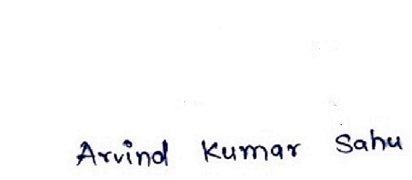 Arvind Kumar Sahu